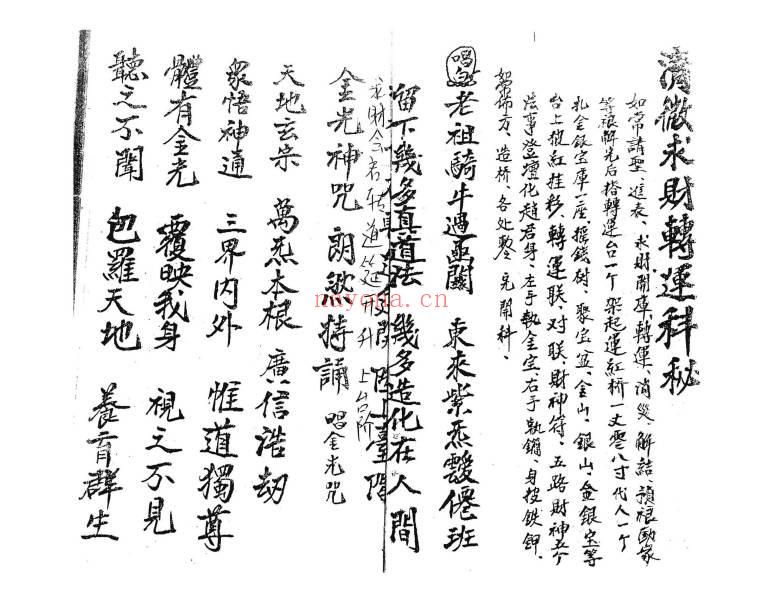 清微求財轉運科秘
如常請聖、進表、求財開庫、轉運、消災、解結、
等禳解完后搭轉運台一个架起運紅橋一丈零八寸代人一个
扎金銀宝庫一座、搖錢树、聚宝盆、金山、銀山、金銀宝等
台上披紅挂彩、轉運联、对联、財神符、五路財神五个
法事登壇化趙君身、左手执金宝、右手执鐧、身披鉄鉀、
造桥、各处整完開科、
唱 老祖騎牛過函關 東來紫炁 僊班
留下幾多真道法 幾多造化在人間
上台階
金光神咒 朗 持誦 唱金光咒
天地玄宗 萬炁本根 廣 浩劫
眾悟神通 三界內外 惟道獨尊
體有金光 覆映我身 視之不見
聽之不聞 包羅天地 養育群生
nayona.cn